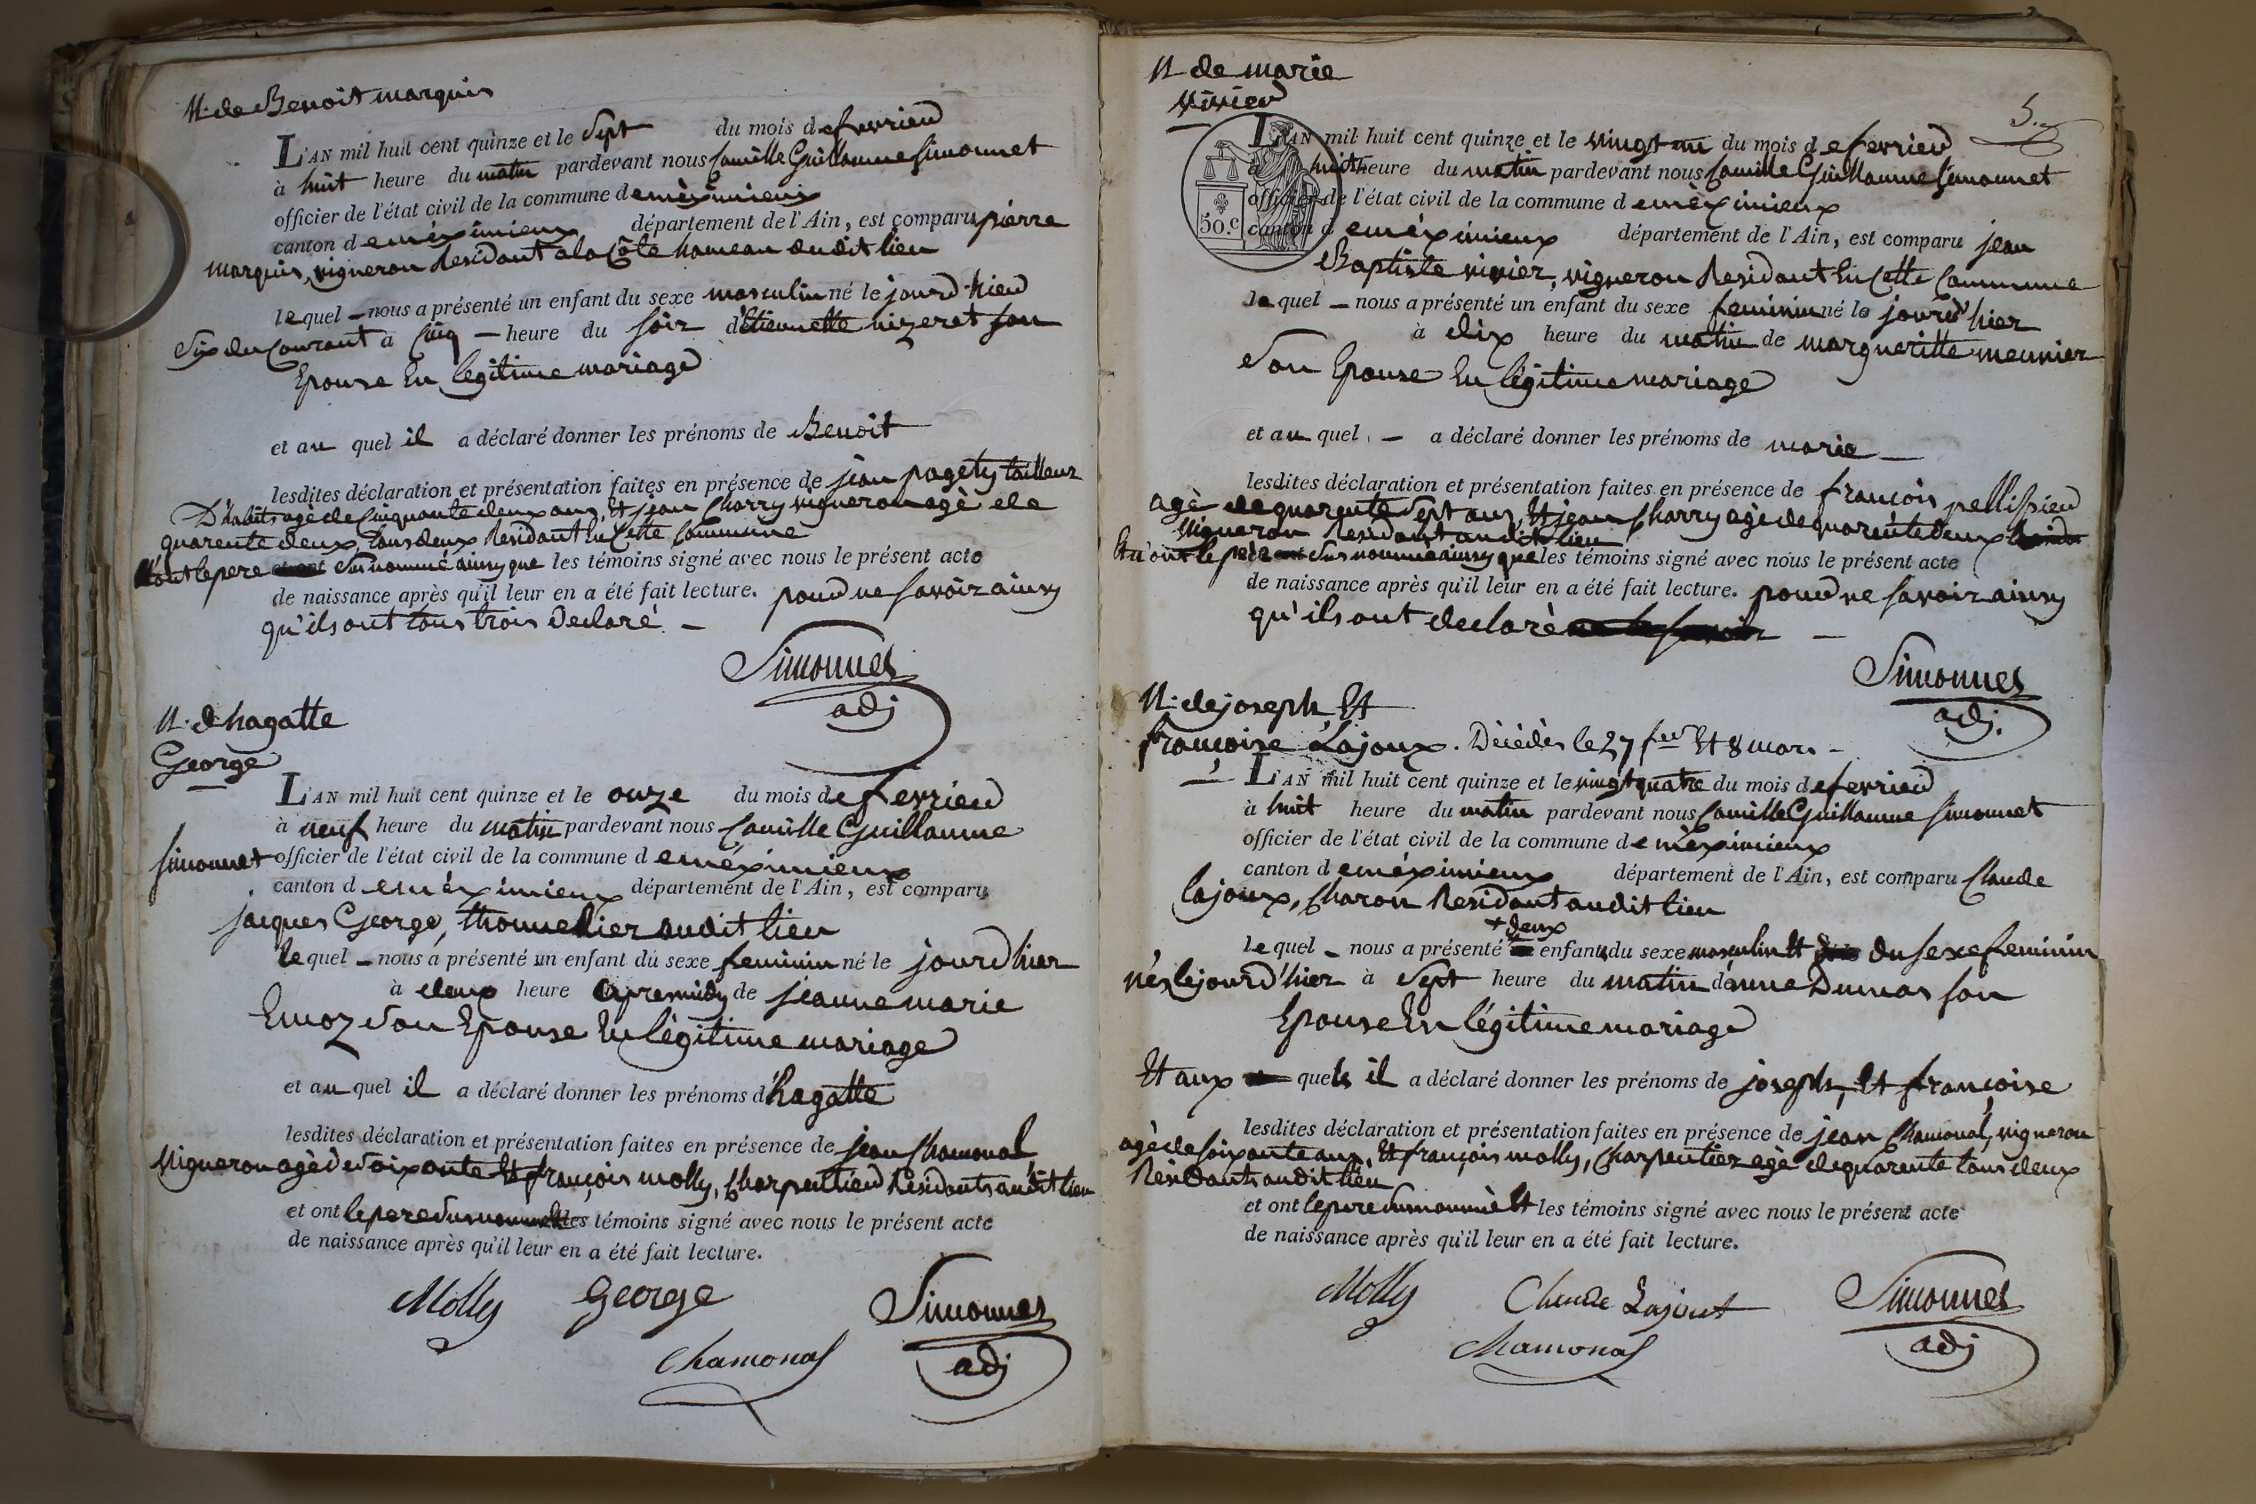 N. de Benoit marquis
L'AN mil huit cent quinze et le sept du mois de fevrier
à huit heure du matin pardevant nous Camille Guillaume Simonnet
officier de l'état civil de la commune de méximieux
canton de méximieux département de l'Ain, est comparu pierre
marquis, vigneron Residant a la Côte hameau dudit lieu
lequel – nous a présenté un enfant du sexe masculin né le jourd'hier
Six du Courant à Cinq – heure du soir d'Etiennette nizeret son
Epouse En légitime mariage
et au quel il a déclaré donner les prénoms de Benoit
lesdites déclaration et présentation faites en présence de jean pagety tailleur
D'habits agé de Cinquante deux ans, Et jean Charry vigneron agè de
quarente deux tous deux Residant En Cette Commune
n'ont le pere susnommé ainsy que les témoins signé avec nous le présent acte
de naissance après qu'il leur en a été fait lecture. pour ne savoir ainsy
qu'ils ont tous trois Declaré –
Simonnet
adj
N. d'hagatte
George
L'AN mil huit cent quinze et le onze du mois de fevrier
à neuf heure du matin pardevant nous Camille Guillaume
Simonnet officier de l'état civil de la commune de méximieux
canton de méximieux département de l'Ain, est comparu
jacques George, thonnelier audit lieu
lequel – nous a présenté un enfant du sexe feminin né le jourd'hier
à deux heure apremidy de jeanne marie
Emoz son Epouse En légitime mariage
et au quel il a déclaré donner les prénoms d'hagatte
lesdites déclaration et présentation faites en présence de jean Chamonal
vigneron agè de soixante Et françois molly, Charpentier Residants audit lieu
et ont le pere susnommé Et les témoins signé avec nous le présent acte
de naissance après qu'il leur en a été fait lecture.
Molly George Simonnet
Chamonal adj
N de marie
vivier
5.
L'AN mil huit cent quinze et le vingt un du mois de fevrier
à huit heure du matin pardevant nous Camille Guillaume Simonnet
officier de l'état civil de la commune de méximieux
50.c canton de méximieux département de l'Ain, est comparu jean
Baptiste vivier, vigneron Residant En Cette Commune
lequel – nous a présenté un enfant du sexe feminin né le jourd'hier
à dix heure du matin de margueritte meunier
son Epouse En légitime mariage
et au quel – a déclaré donner les prénoms de marie –
lesdites déclaration et présentation faites en présence de françois pellissier
agè de quarente sept ans, Et jean Charry agè de quarente deux
vigneron Residant audit lieu
Et n'ont le pere susnommé ainsy que les témoins signé avec nous le présent acte
de naissance après qu'il leur en a été fait lecture. pour ne savoir ainsy
qu'ils ont declaré –
Simonnet
adj.
N. de joseph, Et
françoise Lajoux. Décédés le 27 fer Et 8 mars –
L'AN mil huit cent quinze et le vingt quatre du mois de fevrier
à huit heure du matin pardevant nous Camille Guillaume Simonnet
officier de l'état civil de la commune de méximieux
canton de méximieux département de l'Ain, est comparu Claude
lajoux, Charon Residant audit lieu
+ deux
lequel – nous a présenté enfants du sexe masculin Et du sexe feminin
nés le jourd'hier à sept heure du matin d'anne Dumas son
Epouse En légitime mariage
Et aux quels il a déclaré donner les prénoms de joseph, Et françoise
lesdites déclaration et présentation faites en présence de jean Chamonal, vigneron
agè de soixante ans, Et françois molly, Charpentier agè de quarente tous deux
Residants audit lieu
et ont le pere susnommé Et les témoins signé avec nous le présent acte
de naissance après qu'il leur en a été fait lecture.
Molly Claude Lajout Simonnet
Chamonal adj